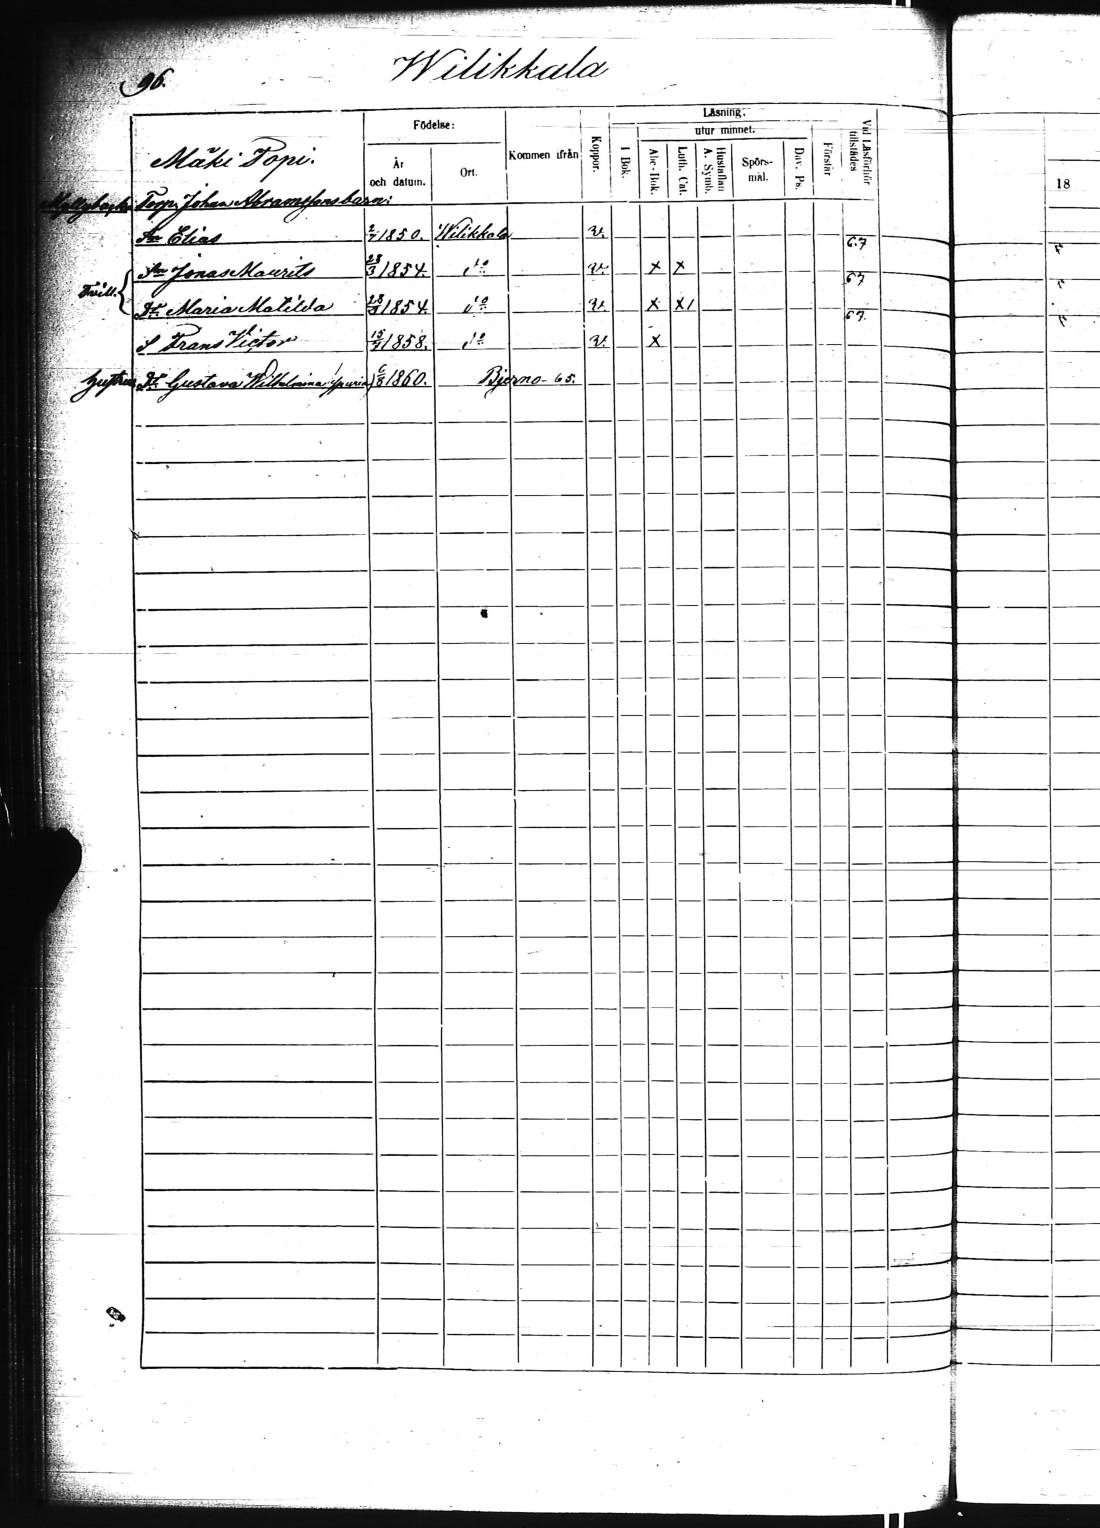 96.
Wilikkala
Mäki Topi.
Födelse:
År och datum.
Ort.
Kommen ifrån
Koppor.
Läsning:
I Bok.
utur minnet.
Abc-Bok.
Luth. Cat.
Hustaflan A. Symb.
Spörsmål.
Dav. Ps.
Förstår
Vid Läsförhör tillstädes
18
Torp. Johan Abramssons barn:
Sn Elias 2/7 1850. Wilikkala v. 67
Tvill. { Sn Jonas Maurits 23/3 1854. do v. x x 67
Dr Maria Matilda 23/3 1854. do v. x x1 67.
S Frans Victor 15/7 1858. do v. x
Dr Gustava Wilhelmina (spuria) 6/8 1860. Bjerno - 65.